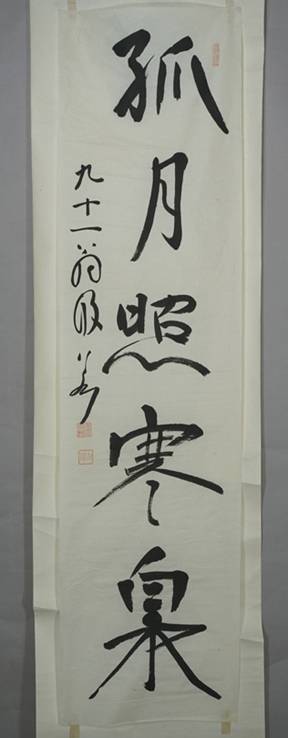 孤月照寒泉
九十一翁